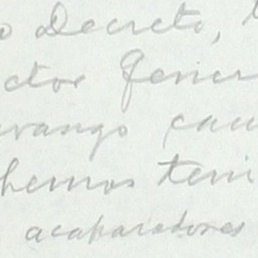 o Decreto,
ctor Gener
urango cau
hemos teni
acaparadores